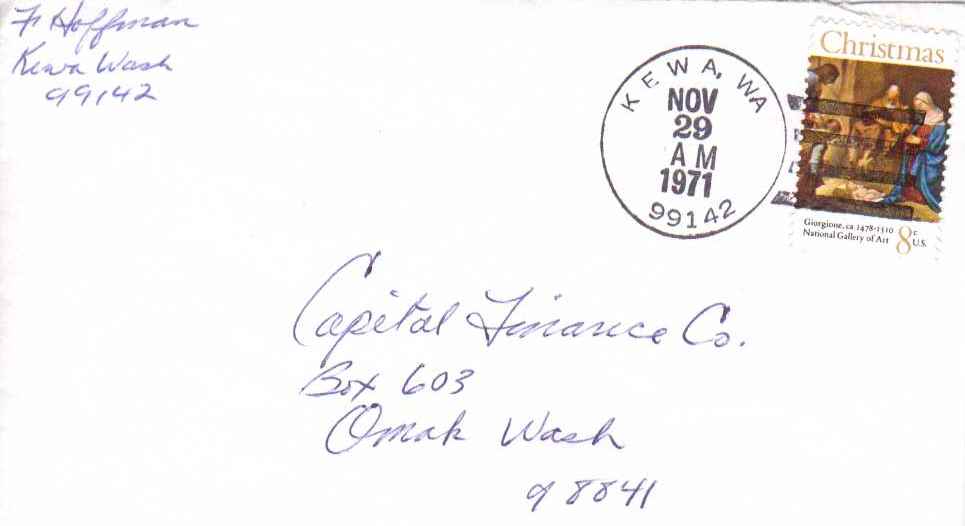 F Hoffman
Kewa Wash
99142
KEWA, WA
NOV
29
AM
1971
99142
Christmas
Giorgione, ca 1478-1510
National Gallery of Art
8c U.S.
Capital Finance Co.
Box 603
Omak Wash
98841